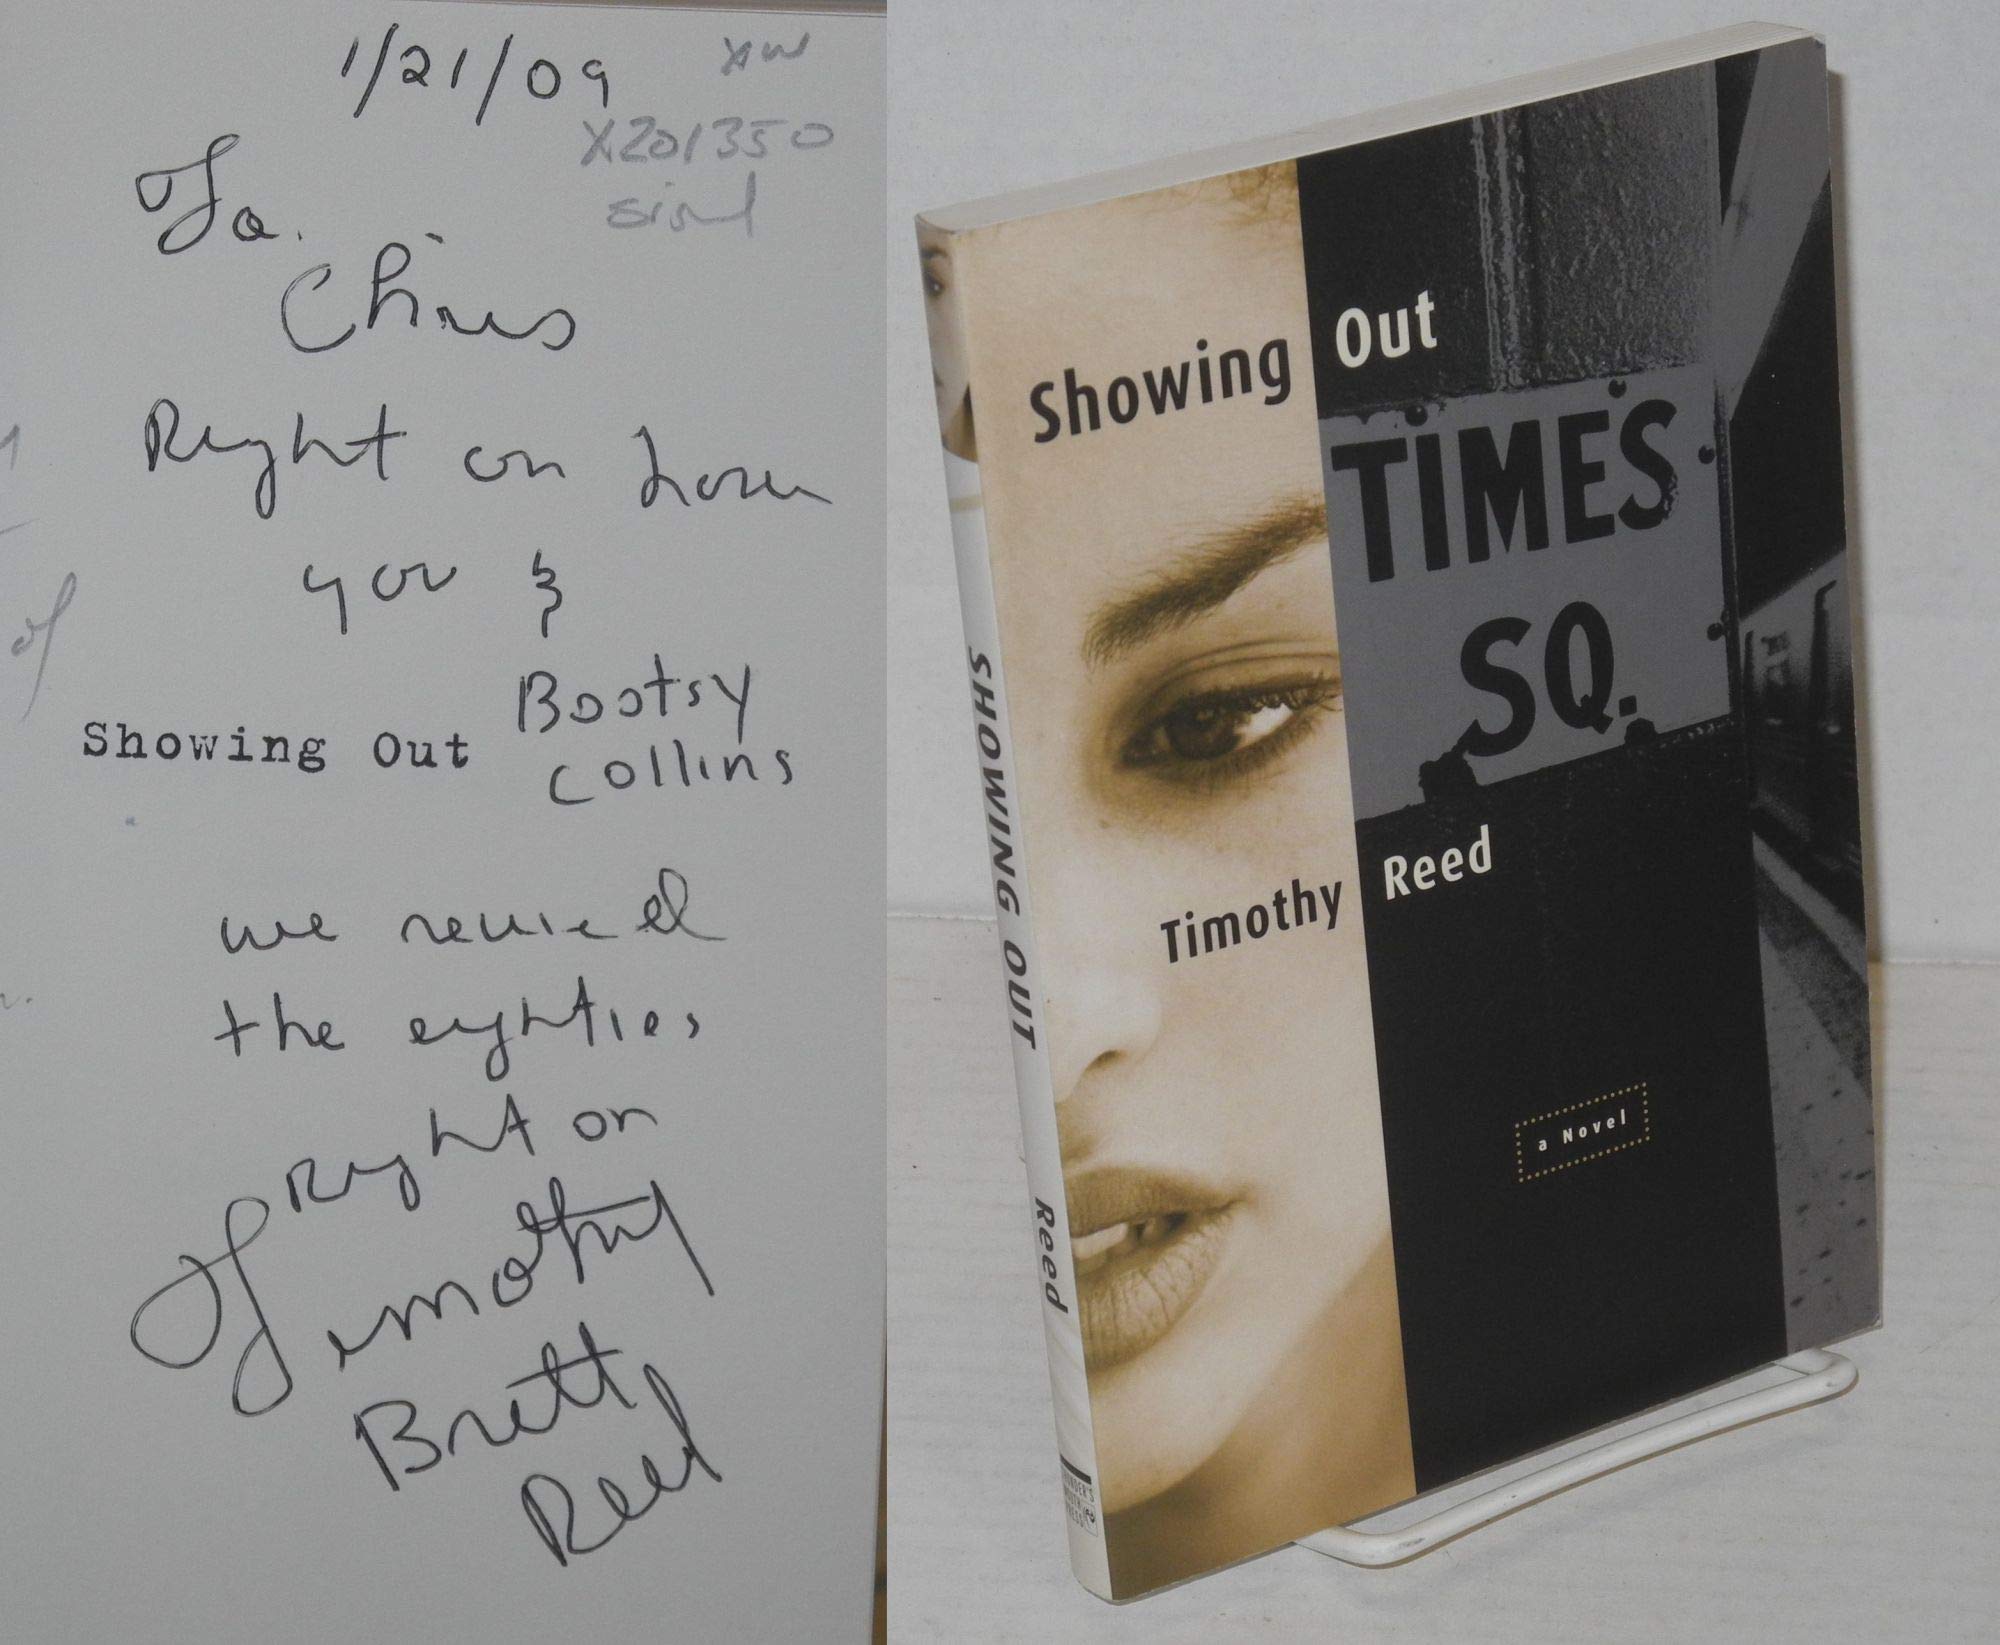 1/21/09
X201350
To
Chris
Right on
you &
Bootsy
Showing Out
Collins
we revived
the eighties
Right on
Timothy
Brett
Reed
of
Showing Out
TIMES
SQ.
Timothy Reed
a Novel
SHOWING OUT Reed
THUNDER'S
MOUTH
PRESS